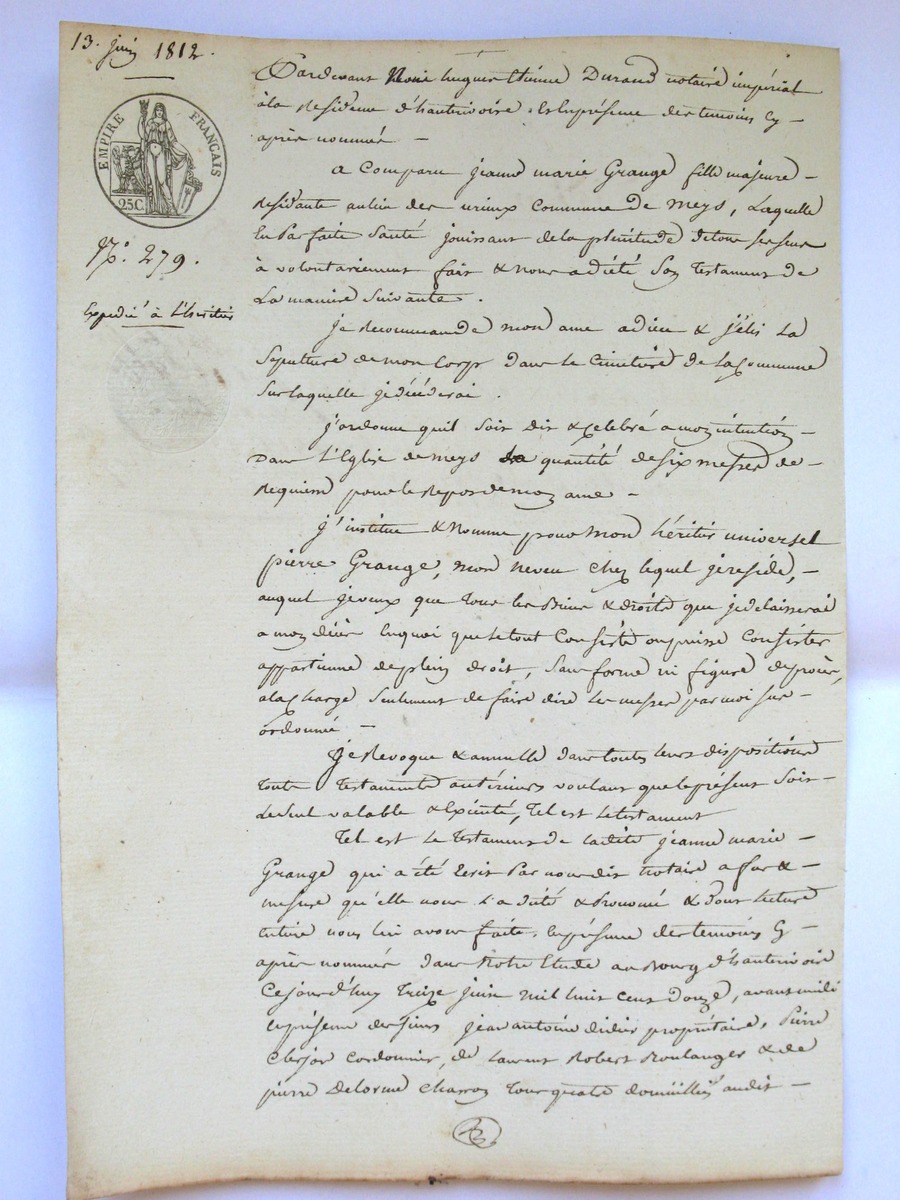 13. juin 1812.
EMPIRE FRANÇAIS
25C.
N.° 279.
Expedié à L'heritier
Pardevant Hugues Etienne Durand notaire impérial
à la Residence d'hauterivoire & En présence des temoins cy-
après nommés -
a Comparu jeanne marie Grange fille majeure -
Residante au lieu des Commune de meys, Laquelle
En Parfaite Santé jouissant de la plenitude de tous ses sens
à volontairement fait & nous a dicté Son Testament de
La maniere Suivante.
je Recommande mon ame a dieu & j'élis La
Sepulture de mon Corps dans le Cimetiere de La Commune
Sur laquelle je décéderai.
j'ordonne quil Soit dit & Celebré a mon intention -
Dans L'Eglise de meys quantité de six messes de -
Requiem pour le Repos de mon ame -
j'institue & Nomme pour mon héritier universel
pierre Grange, mon neveu chez lequel je reside, -
auquel je veux que tous les Biens & droits que je delaisserai
a mon décès En quoi que le tout Consiste ou puisse Consister
appartienne de plein droit, Sans forme ni figure de procès,
a la Charge Seulement de faire dire les messes par moi sus-
ordonné -
Je Revoque & annulle dans toutes leurs dispositions
toute Testaments antérieurs voulant que le présent Soit
Le Seul valable & Exécuté, Tel est le testament
Tel est Le Testament de Ladite jeanne marie -
Grange qui a été Ecrit Par nous dit notaire a fur & -
mesure qu'elle nous L'a dicté & Prononcé & dont Lecture
Entiere nous lui avons faite, En présence des temoins Cy-
après nommés dans Notre Etude au Bourg d'hauterivoire
Ce jourd'huy treize juin mil huit cent douze, avant midi
En présence des sieurs jean antoine didier propriétaire, Pierre
Cordonnier, de Laurent Robert Boulanger & de
pierre Delorme Charron Tous quatre domiciliés audit -